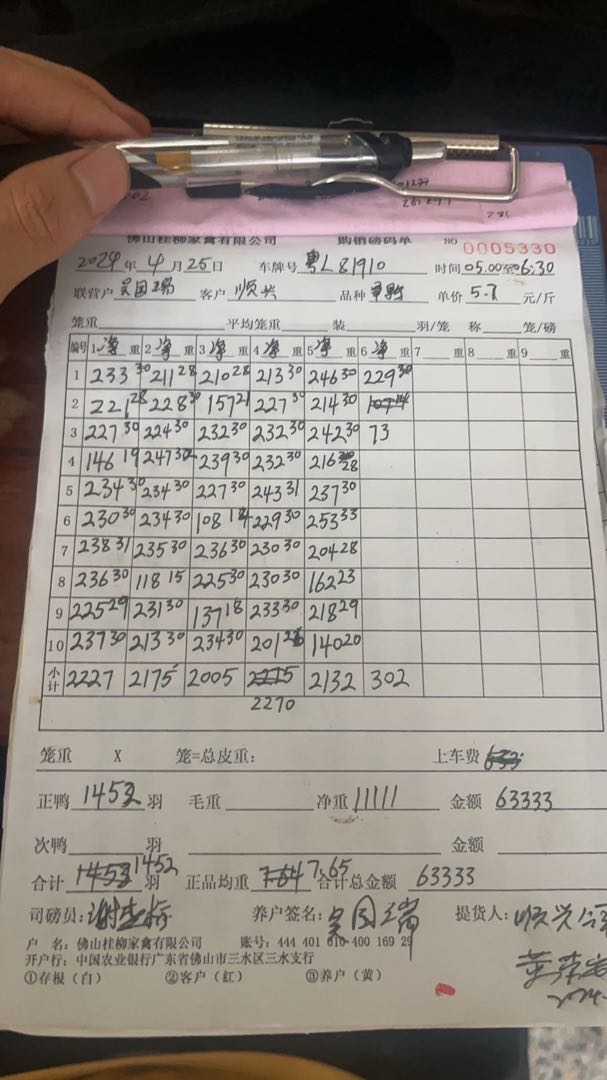 佛山桂柳家禽有限公司 购销磅码单 NO 0005330
2024年4月25日 车牌号 粤L81910 时间05.00至06:30
联营户 吴国瑞 客户 顺兴 品种 单价 5.7 元/斤
笼重 平均笼重 装 羽/笼 称 笼/磅
编号 1 净重 2 净重 3 净重 4 净重 5 净重 6 净重 7 重 8 重 9 重
1 233 30 211 28 210 28 213 30 246 30 229 30
2 221 28 228 30 157 21 227 30 214 30
3 227 30 224 30 232 30 232 30 242 30 73
4 146 19 247 239 30 232 30 216 28
5 234 30 234 30 227 30 243 31 237 30
6 230 30 234 30 108 14 229 30 253 33
7 238 31 235 30 236 30 230 30 204 28
8 236 30 118 15 225 30 230 30 162 23
9 225 29 231 30 137 18 233 30 218 29
10 237 30 213 30 234 30 201 26 140 20
小计 2227 2175 2005 2275 2132 302
2270
笼重 X 笼=总皮重: 上车费 633
正鸭 1452 羽 毛重 净重 11111 金额 63333
次鸭 羽 金额
合计 1453 1452 羽 正品均重 7.64 7.65 合计总金额 63333
司磅员: 养户签名: 吴国瑞 提货人: 顺兴
户 名: 佛山桂柳家禽有限公司 账号: 444 401 010 400 169 29
开户行: 中国农业银行广东省佛山市三水区三水支行
①存根（白） ②客户（红） ③养户（黄）